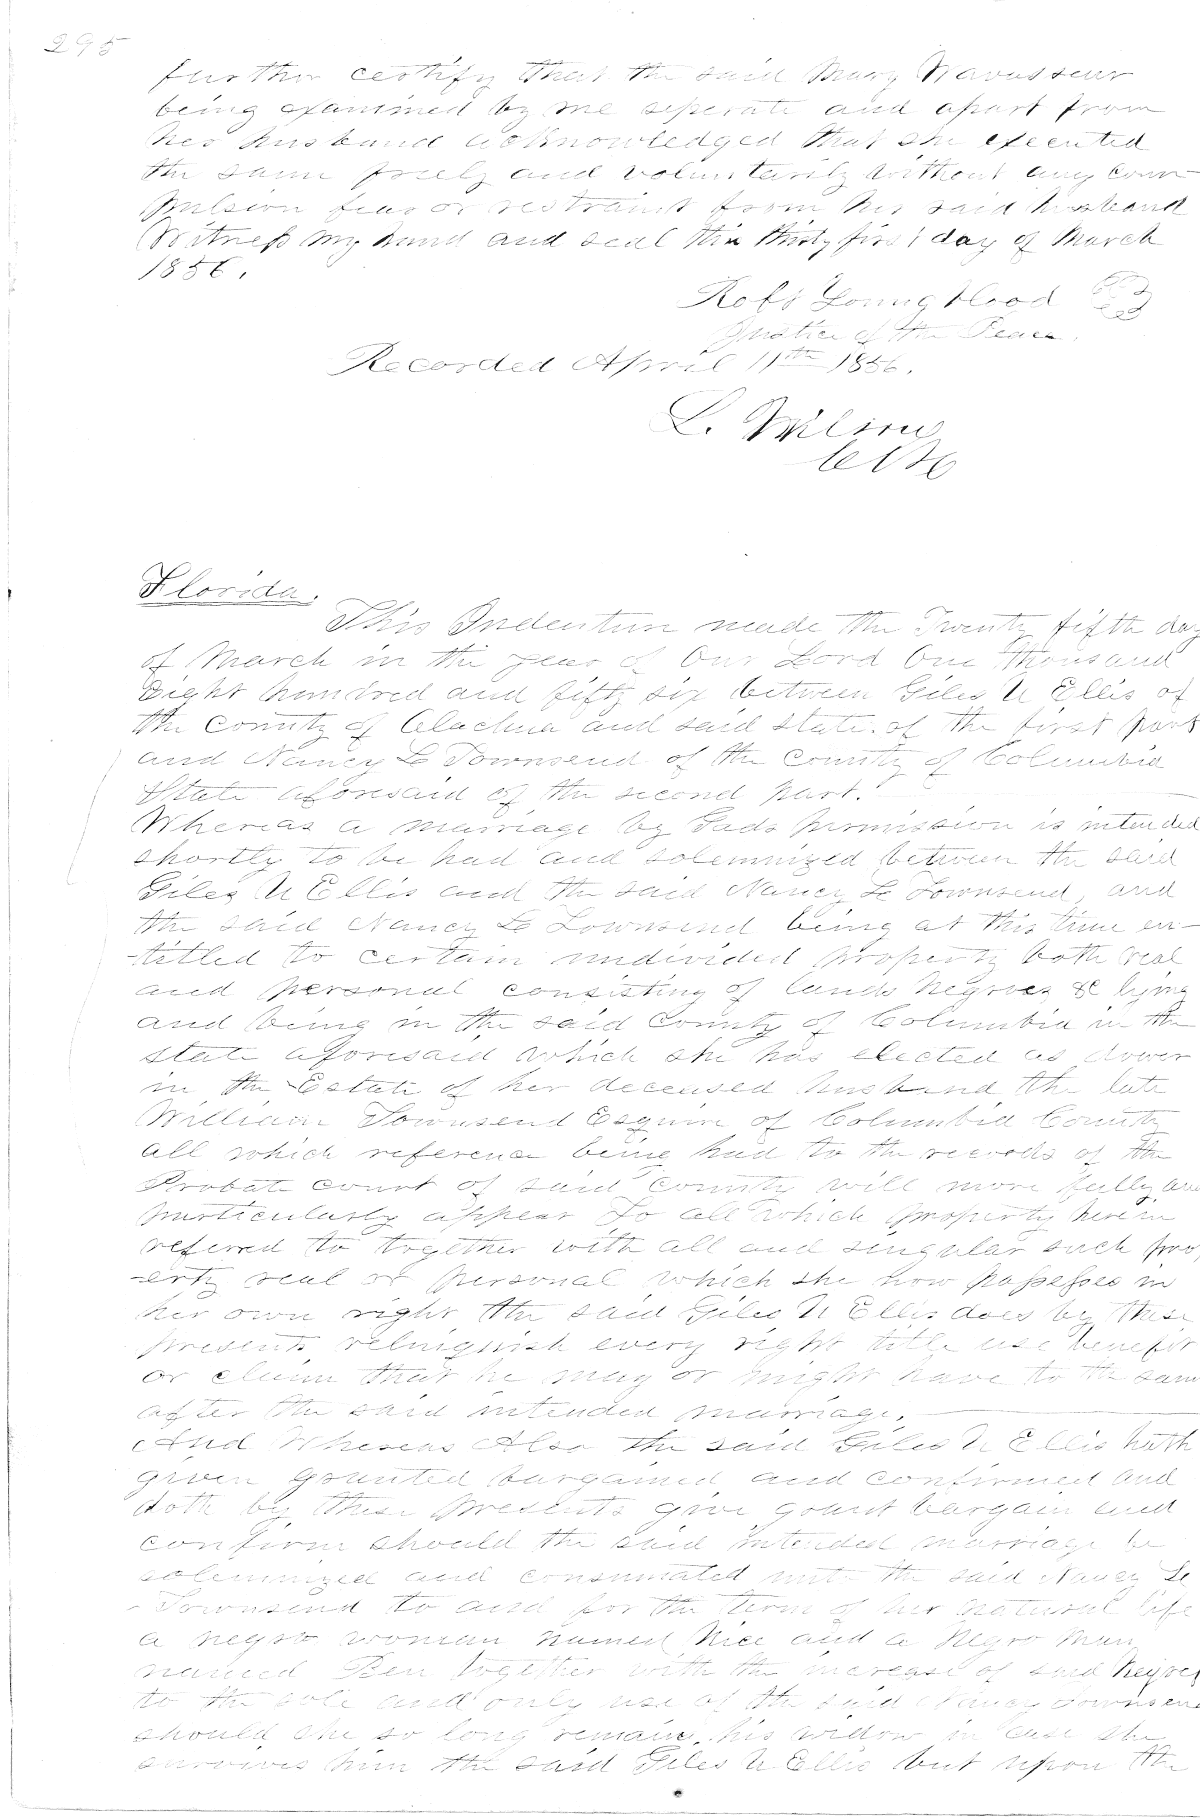 295
further certify that the said Mary Vavasseur
being examined by me seperate and apart from
her husband acknowledged that she executed
the same freely and voluntarily without any com-
pulsion fear or restraint from her said husband
Witness my hand and seal this thirty first day of March
1856.
Robt Youngblood
Justice of the Peace.
Recorded April 11th 1856.
L. Wilson
Florida.
This Indenture made the Twenty fifth day
of March in the year of Our Lord One thousand
Eight hundred and fifty six between Giles U Ellis of
the County of Alachua and said state of the first part
and Nancy L Townsend of the County of Columbia
State aforesaid of the second part.
Whereas a marriage by Gods permission is intended
shortly to be had and solemnized between the said
Giles U Ellis and the said Nancy L Townsend, and
the said Nancy L Townsend being at this time en-
-titled to certain undivided property both real
and personal consisting of lands Negroes &c lying
and being in the said County of Columbia in the
state aforesaid which she has elected as dower
in the Estate of her deceased husband the late
William Townsend Esquire of Columbia County
all which reference being had to the records of the
Probate court of said County will more fully and
particularly appear To all which property herein
referred to together with all and singular such prop
-erty real or personal which she now possesses in
her own right the said Giles U Ellis does by these
presents relinquish every right title use benefit
or claim that he may or might have to the same
after the said intended marriage.
And Whereas Also the said Giles U Ellis hath
given granted bargained and confirmed and
doth by these presents give grant bargain and
confirm should the said intended marriage be
solemnized and consumated unto the said Nancy L
-Townsend to and for the term of her natural life
a negro woman named Nice and a Negro man
named Ben together with the increase of said Negroes
to the sole and only use of the said Nancy Townsend
should she so long remain his widow in case she
survives him the said Giles U Ellis but upon the